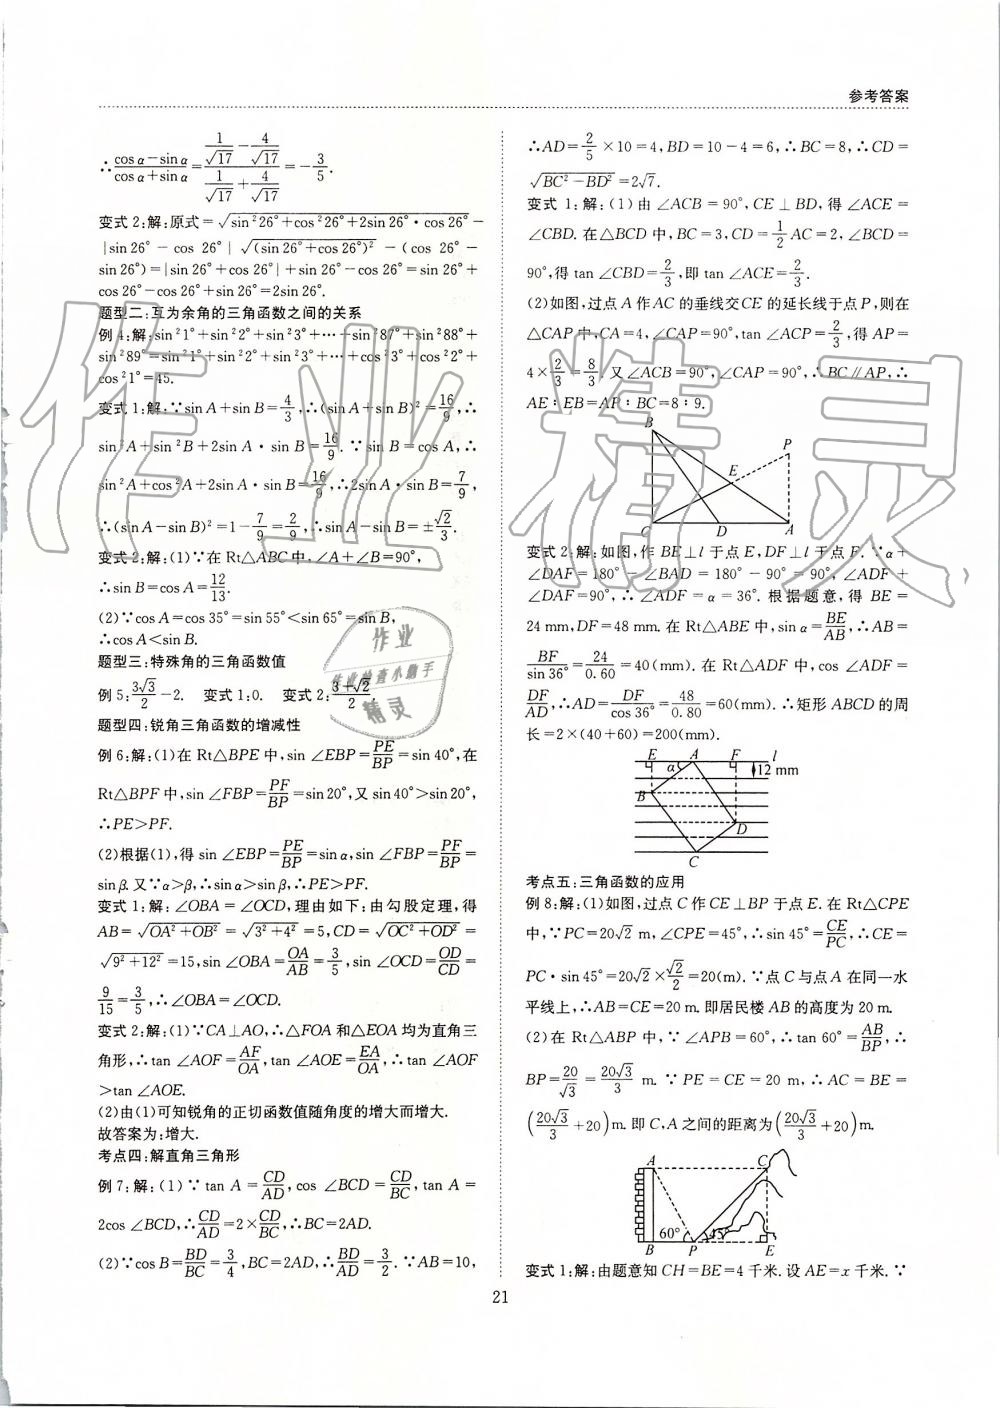 参考答案
∴(cosα−sinα)/(cosα+sinα)=(1/√17−4/√17)/(1/√17+4/√17)=−3/5.
变式2:解:原式=√(sin²26°+cos²26°+2sin26°·cos26°)−
|sin26°−cos 26°| √(sin26°+cos26°)²−(cos 26°−
sin26°)=|sin26°+cos26°|+sin26°−cos26°=sin26°+
cos26°−cos26°+sin26°=2sin26°.
题型二:互为余角的三角函数之间的关系
例4:解:sin²1°+sin²2°+sin²3°+⋯+sin²87°+sin²88°+
sin²89°=sin²1°+sin²2°+sin²3°+⋯+cos²3°+cos²2°+
cos²1°=45.
变式1:解:∵sinA+sinB=4/3,∴(sinA+sinB)²=16/9,∴
sin²A+sin²B+2sinA·sinB=16/9.∵sinB=cosA,∴
sin²A+cos²A+2sinA·sinB=16/9,∴2sinA·sinB=7/9,
∴(sinA−sinB)²=1−7/9=2/9,∴sinA−sinB=±√2/3.
变式2:解:(1)∵在Rt△ABC中,∠A+∠B=90°,
∴sinB=cosA=12/13.
(2)∵cosA=cos35°=sin55°<sin65°=sinB,
∴cosA<sinB.
题型三:特殊角的三角函数值
例5:3√3/2−2. 变式1:0. 变式2:(3+√2)/2.
题型四:锐角三角函数的增减性
例6:解:(1)在Rt△BPE中,sin∠EBP=PE/BP=sin40°,在
Rt△BPF中,sin∠FBP=PF/BP=sin20°,又sin40°>sin20°,
∴PE>PF.
(2)根据(1),得sin∠EBP=PE/BP=sinα,sin∠FBP=PF/BP=
sinβ.又∵α>β,∴sinα>sinβ,∴PE>PF.
变式1:解:∠OBA=∠OCD,理由如下:由勾股定理,得
AB=√(OA²+OB²)=√(3²+4²)=5,CD=√(OC²+OD²)=
√(9²+12²)=15,sin∠OBA=OA/AB=3/5,sin∠OCD=OD/CD=
9/15=3/5,∴∠OBA=∠OCD.
变式2:解:(1)∵CA⊥AO,∴△FOA和△EOA均为直角三
角形,∴tan∠AOF=AF/OA,tan∠AOE=EA/OA,∴tan∠AOF
>tan∠AOE.
(2)由(1)可知锐角的正切函数值随角度的增大而增大.
故答案为:增大.
考点四:解直角三角形
例7:解:(1)∵tanA=CD/AD,cos∠BCD=CD/BC,tanA=
2cos∠BCD,∴CD/AD=2×CD/BC,∴BC=2AD.
(2)∵cosB=BD/BC=3/4,BC=2AD,∴BD/AD=3/2.∵AB=10,
∴AD=2/5×10=4,BD=10−4=6,∴BC=8,∴CD=
√(BC²−BD²)=2√7.
变式1:解:(1)由∠ACB=90°,CE⊥BD,得∠ACE=
∠CBD.在△BCD中,BC=3,CD=1/2AC=2,∠BCD=
90°,得tan∠CBD=2/3,即tan∠ACE=2/3.
(2)如图,过点A作AC的垂线交CE的延长线于点P,则在
△CAP中,CA=4,∠CAP=90°,tan∠ACP=2/3,得AP=
4×2/3=8/3.又∠ACB=90°,∠CAP=90°,∴BC∥AP,∴
AE∶EB=AP∶BC=8∶9.
B P E C D A
变式2:解:如图,作BE⊥l于点E,DF⊥l于点F.∵α+
∠DAF=180°−∠BAD=180°−90°=90°,∠ADF+
∠DAF=90°,∴∠ADF=α=36°.根据题意,得BE=
24mm,DF=48mm.在Rt△ABE中,sinα=BE/AB,∴AB=
BF/sin36°=24/0.60=40(mm).在Rt△ADF中,cos∠ADF=
DF/AD,∴AD=DF/cos36°=48/0.80=60(mm).∴矩形ABCD的周
长=2×(40+60)=200(mm).
E A F l
α 12 mm
B
D
C
考点五:三角函数的应用
例8:解:(1)如图,过点C作CE⊥BP于点E.在Rt△CPE
中,∵PC=20√2 m,∠CPE=45°,∴sin45°=CE/PC,∴CE=
PC·sin45°=20√2×√2/2=20(m).∵点C与点A在同一水
平线上,∴AB=CE=20m.即居民楼AB的高度为20m.
(2)在Rt△ABP中,∵∠APB=60°,∴tan60°=AB/BP,∴
BP=20/√3=20√3/3 m.∵PE=CE=20 m,∴AC=BE=
(20√3/3+20)m.即C,A之间的距离为(20√3/3+20)m.
A C
60° 45°
B P E
变式1:解:由题意知CH=BE=4千米.设AE=x千米.∵
21
作业精灵
作业
作业检查小助手
精灵